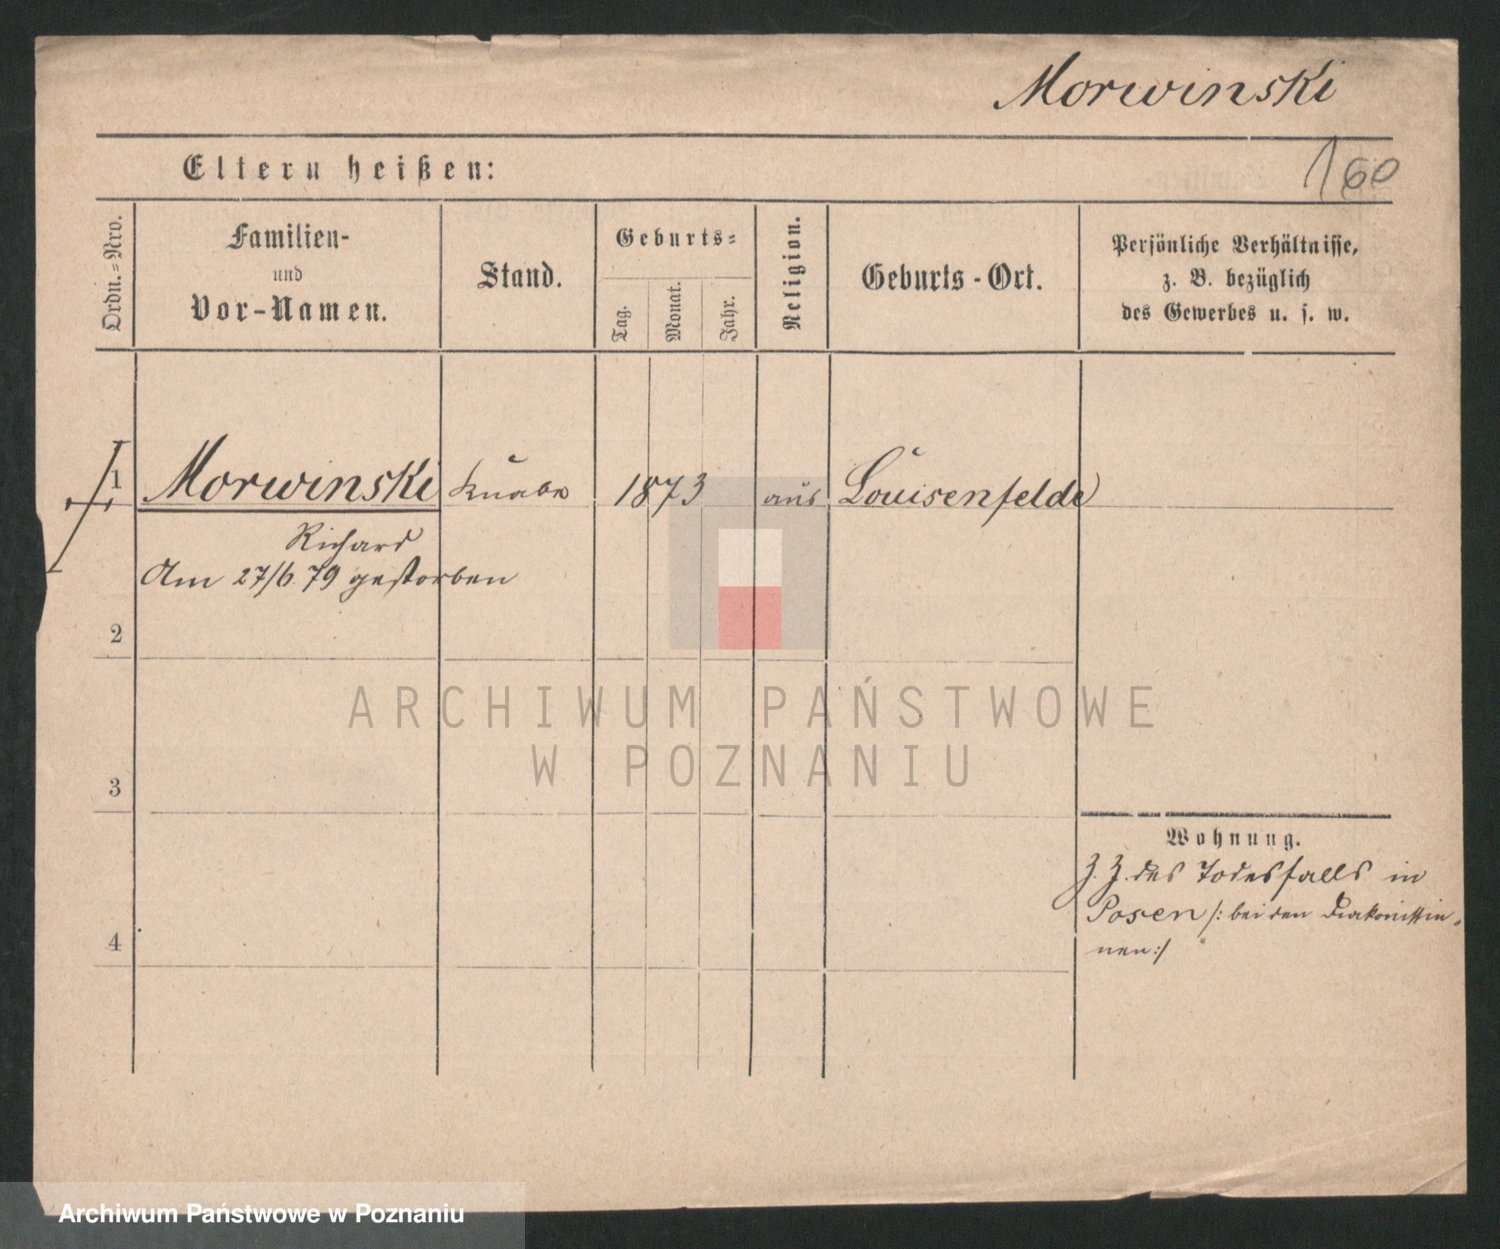 Morwinski
160
Eltern heißen:
Ordn.=Nro.
Familien-
und
Vor-Namen.
Stand.
Geburts=
Tag.
Monat.
Jahr.
Religion.
Geburts-Ort.
Persönliche Verhältnisse,
z. B. bezüglich
des Gewerbes u. s. w.
1 Morwinski Knabe 1873 aus Louisenfelde
Richard
Am 27/6 79 gestorben
2
3
4
Wohnung.
Z. Z. des Todesfalls in
Posen /: bei den Diakonissin-
nen :/
ARCHIWUM PAŃSTWOWE
W POZNANIU
Archiwum Państwowe w Poznaniu